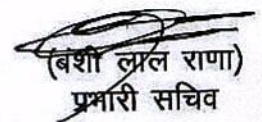 (बंशी लाल राणा)
प्रभारी सचिव